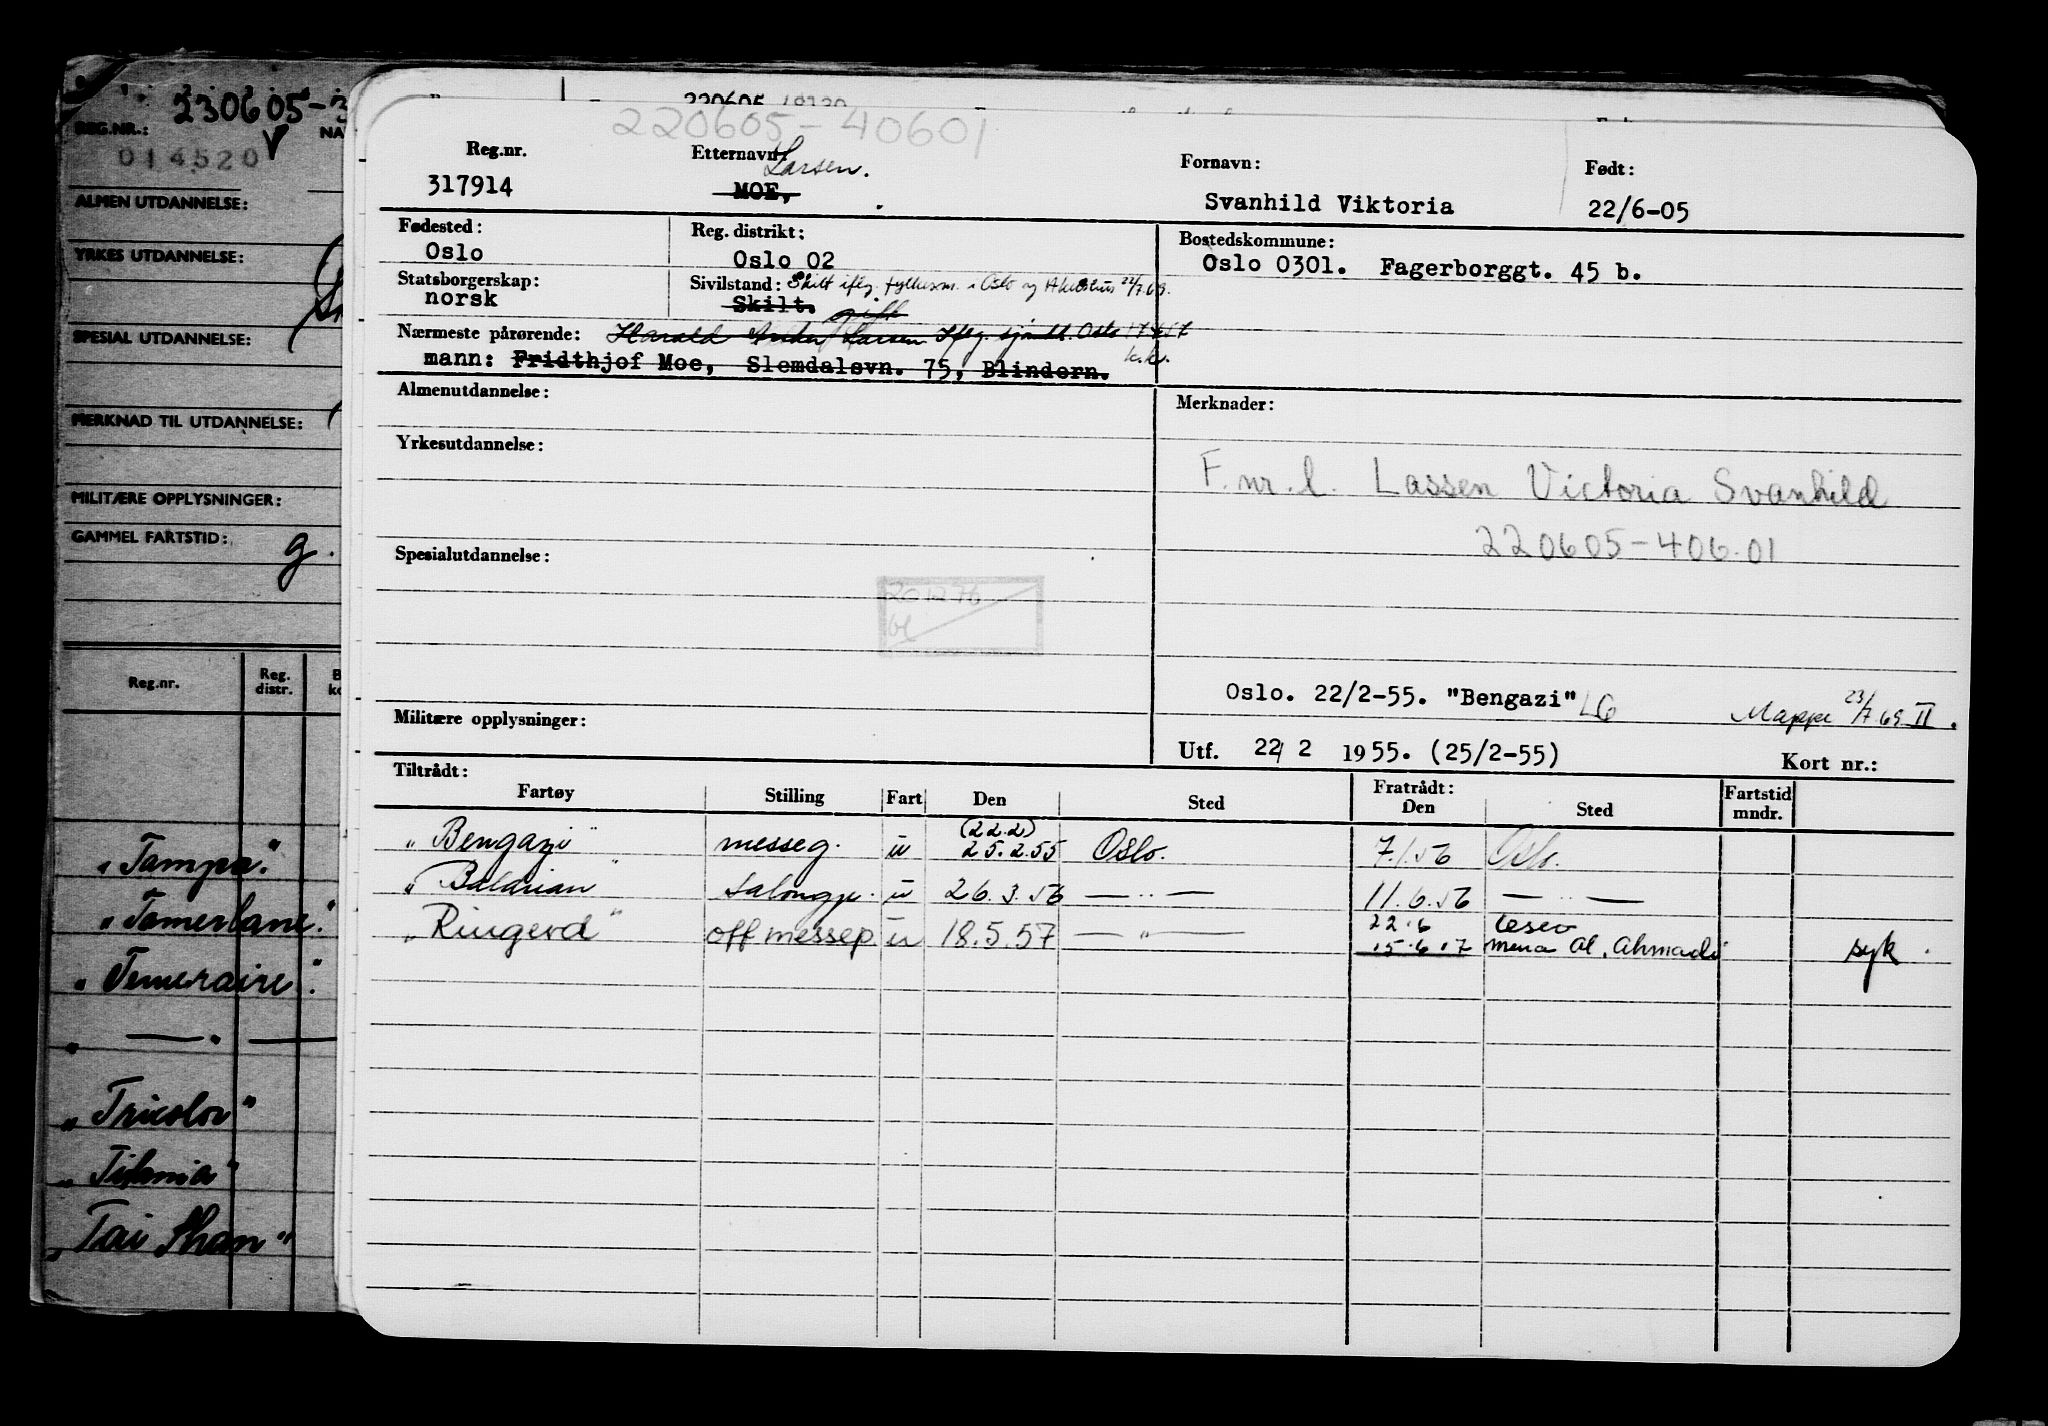 230605-3
REG.NR.: NA
014520
ALMEN UTDANNELSE:
YRKES UTDANNELSE:
SPESIAL UTDANNELSE:
MERKNAD TIL UTDANNELSE:
MILITÆRE OPPLYSNINGER:
GAMMEL FARTSTID: g.
Reg.nr. Reg. distr.
"Tampa".
"Tamerlane".
"Temeraire".
" — . —
"Tricolor"
"Titania"
"Tai Shan"
220605
220605-40601
Reg.nr. Etternavn: Larsen. Fornavn: Født:
317914 MOE, Svanhild Viktoria 22/6-05
Fødested: Reg. distrikt: Bostedskommune:
Oslo Oslo 02 Oslo 0301. Fagerborggt. 45 b.
Statsborgerskap: Sivilstand: Skilt iflg. fylkesm. i Oslo og Akershus 22/7.69.
norsk Skilt. gift
Nærmeste pårørende: Harald Larsen Iflg. sjømdt. Oslo
mann: Fridthjof Moe, Slemdalsvn. 75, Blindern. k.k.
Almenutdannelse: Merknader:
Yrkesutdannelse:
F.nr.l. Lassen Victoria Svanhild
220605-406.01
Spesialutdannelse:
201276
Oslo. 22/2-55. "Bengazi" LG Mappe 23/7 69 II.
Militære opplysninger:
Utf. 22/2 1955. (25/2-55) Kort nr.:
Tiltrådt: Fratrådt: Fartstid
Fartøy Stilling Fart Den Sted Den Sted mndr.
(22.2)
"Bengazi" messeg. u 25.2.55 Oslo. 7.1.56 Oslo.
"Balarian" salongp. u 26.3.56 — " — 11.6.56 — " —
22.6
"Ringerd" off messep. u 18.5.57 — " — 15.6.57 Mena Al. Ahmadi syk.